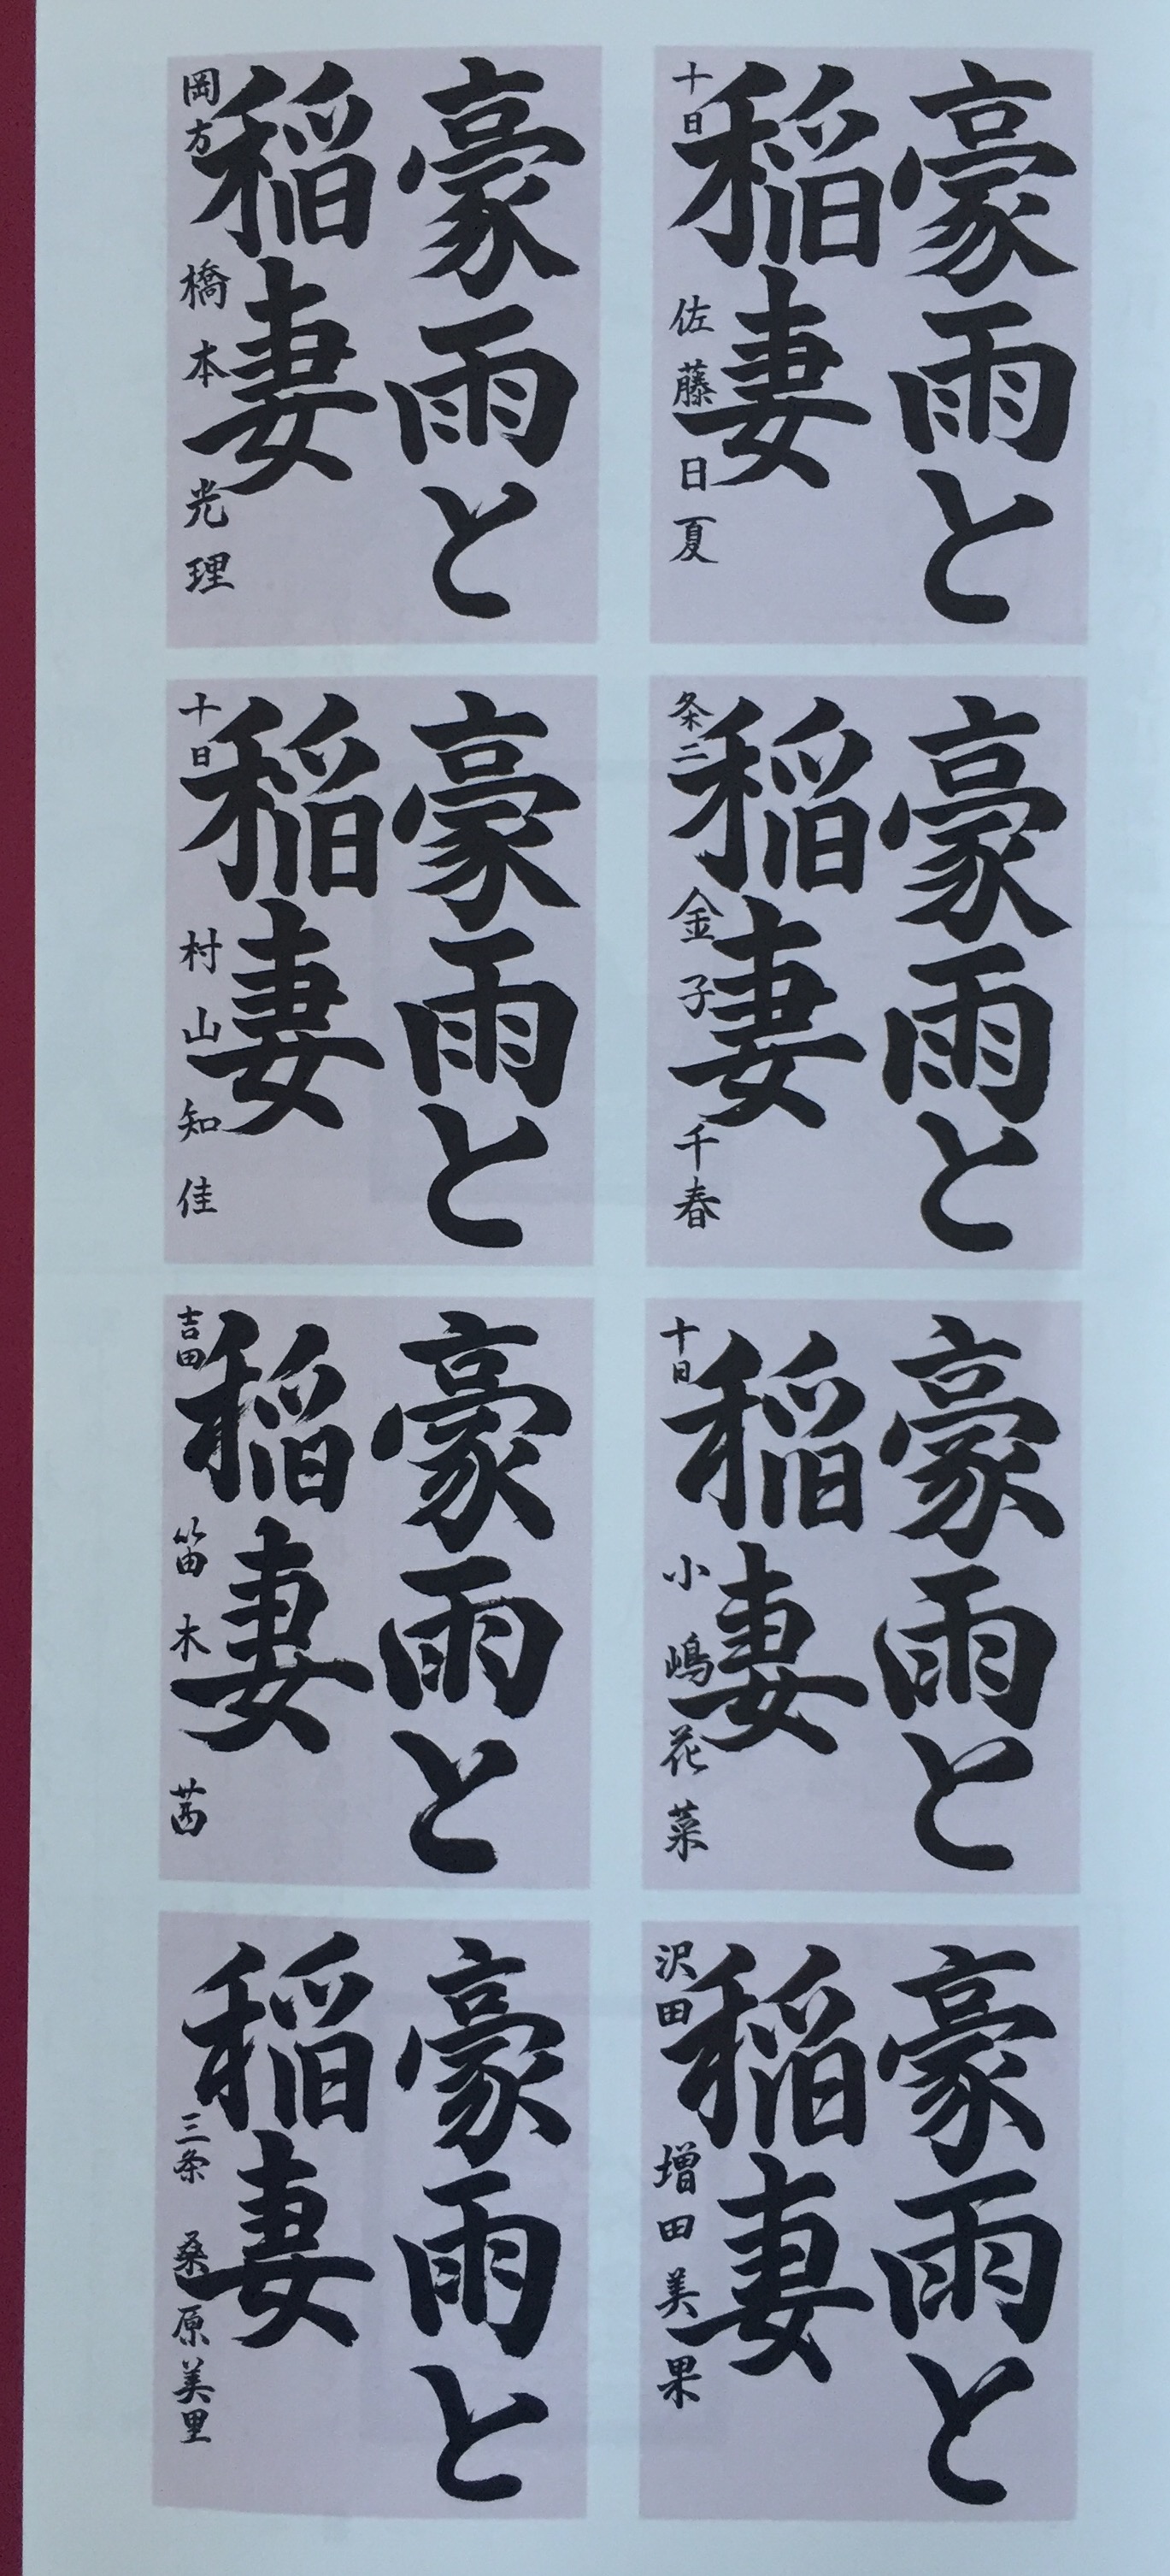 豪雨と
稲妻
十日 佐藤日夏
豪雨と
稲妻
岡方 橋本光理
豪雨と
稲妻
条二 金子千春
豪雨と
稲妻
十日 村山知佳
豪雨と
稲妻
十日 小嶋花菜
豪雨と
稲妻
吉田 笛木茜
豪雨と
稲妻
沢田 増田美果
豪雨と
稲妻
三条 桑原美里